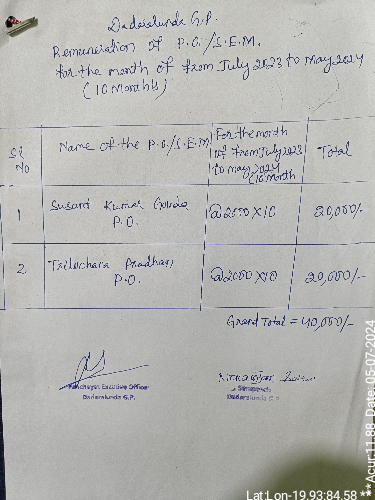 Dadaralunda G.P.
Remuneration of P.O./S.E.M.
for the month of from July 2023 to May 2024
(10 Months)
Sl No
Name of the P.O./S.E.M
For the month of from July 2023 to may 2024 (10 Month
Total
1
Susant Kumar
P.O.
@2000 X 10
20,000/-
2
Trilochana Pradhan
P.O.
@2000 X 10
20,000/-
Grand Total = 40,000/-
Panchayat Executive Officer
Dadaralunda G.P.
Sarapanch
Dadaralunda G.P.
Lat:Lon-19.93:84.58 **Acur:11.88_Date: 05-07-2024